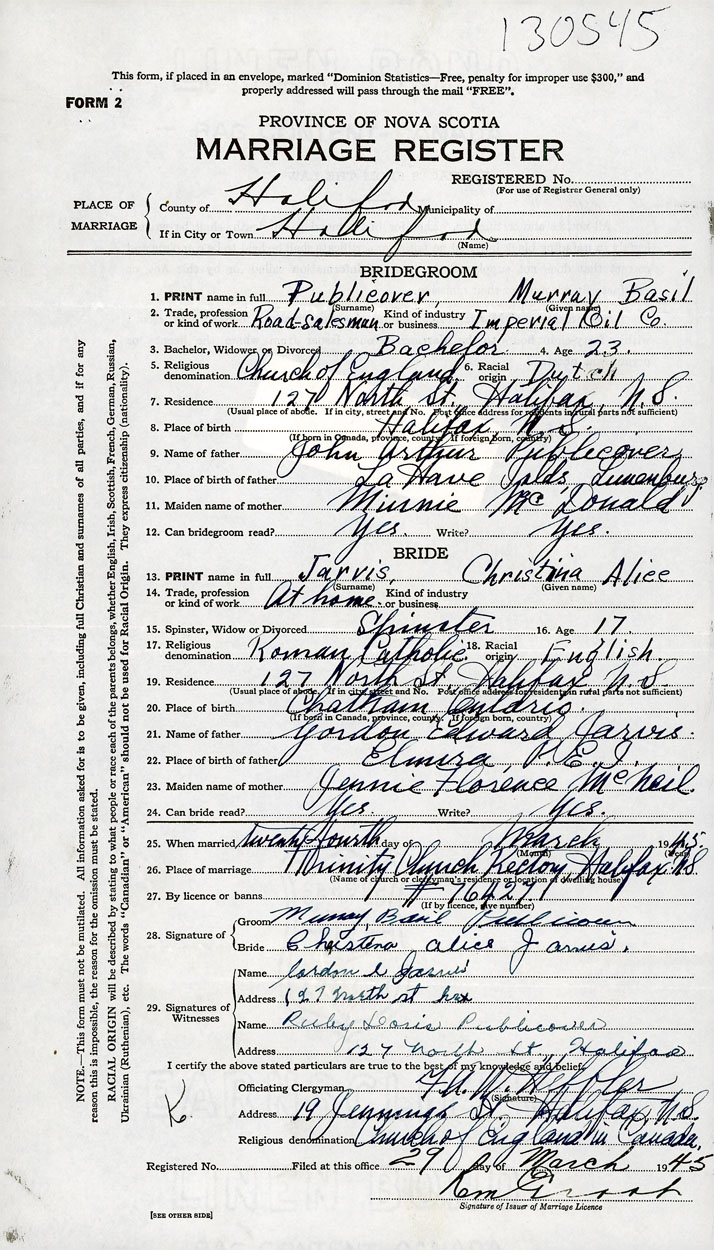 130545
This form, if placed in an envelope, marked "Dominion Statistics—Free, penalty for improper use $300," and
properly addressed will pass through the mail "FREE".
FORM 2
PROVINCE OF NOVA SCOTIA
MARRIAGE REGISTER
REGISTERED No.
(For use of Registrar General only)
PLACE OF MARRIAGE
County of Halifax Municipality of
If in City or Town Halifax
(Name)
BRIDEGROOM
1. PRINT name in full Publicover, Murray Basil
(Surname) (Given name)
2. Trade, profession or kind of work Road-salesman Kind of industry or business Imperial Oil Co.
3. Bachelor, Widower or Divorced Bachelor 4. Age 23.
5. Religious denomination Church of England 6. Racial origin Dutch
7. Residence 127 North St., Halifax, N.S.
(Usual place of abode. If in city, street and No. Post office address for residents in rural parts not sufficient)
8. Place of birth Halifax, N.S.
(If born in Canada, province, county. If foreign born, country)
9. Name of father John Arthur Publicover
10. Place of birth of father La Have Lunenburg
11. Maiden name of mother Minnie McDonald
12. Can bridegroom read? Yes. Write? Yes.
BRIDE
13. PRINT name in full Jarvis, Christina Alice
(Surname) (Given name)
14. Trade, profession or kind of work At home. Kind of industry or business
15. Spinster, Widow or Divorced Spinster 16. Age 17.
17. Religious denomination Roman Catholic 18. Racial origin English.
19. Residence 127 North St., Halifax N.S.
(Usual place of abode. If in city, street and No. Post office address for residents in rural parts not sufficient)
20. Place of birth Chatham Ontario.
(If born in Canada, province, county. If foreign born, country)
21. Name of father Gordon Edward Jarvis.
22. Place of birth of father Elmira P.E.I.
23. Maiden name of mother Jennie Florence McNeil.
24. Can bride read? Yes. Write? Yes.
25. When married, twenty-fourth day of March 1945.
(Month) (Year)
26. Place of marriage Trinity Church Rectory, Halifax N.S.
(Name of church or clergyman's residence or location of dwelling house)
27. By licence or banns # 16427
(If by licence, give number)
28. Signature of
Groom Murray Basil Publicover
Bride Christena alice Jarvis.
29. Signatures of Witnesses
Name Gordon E Jarvis
Address 127 north st hfx
Name Ruby Doris Publicover
Address 127 North St., Halifax
I certify the above stated particulars are true to the best of my knowledge and belief.
Officiating Clergyman
(Signature)
Address 19 Jennings St. Halifax N.S.
Religious denomination Church of England in Canada.
Registered No. Filed at this office 29 day of March 1945
Signature of Issuer of Marriage Licence
[SEE OTHER SIDE]
NOTE.—This form must not be mutilated. All information asked for is to be given, including full Christian and surnames of all parties, and if for any
reason this is impossible, the reason for the omission must be stated.
RACIAL ORIGIN will be described by stating to what people or race each of the parents belongs, whether English, Irish, Scottish, French, German, Russian,
Ukrainian (Ruthenian), etc. The words "Canadian" or "American" should not be used for Racial Origin. They express citizenship (nationality).